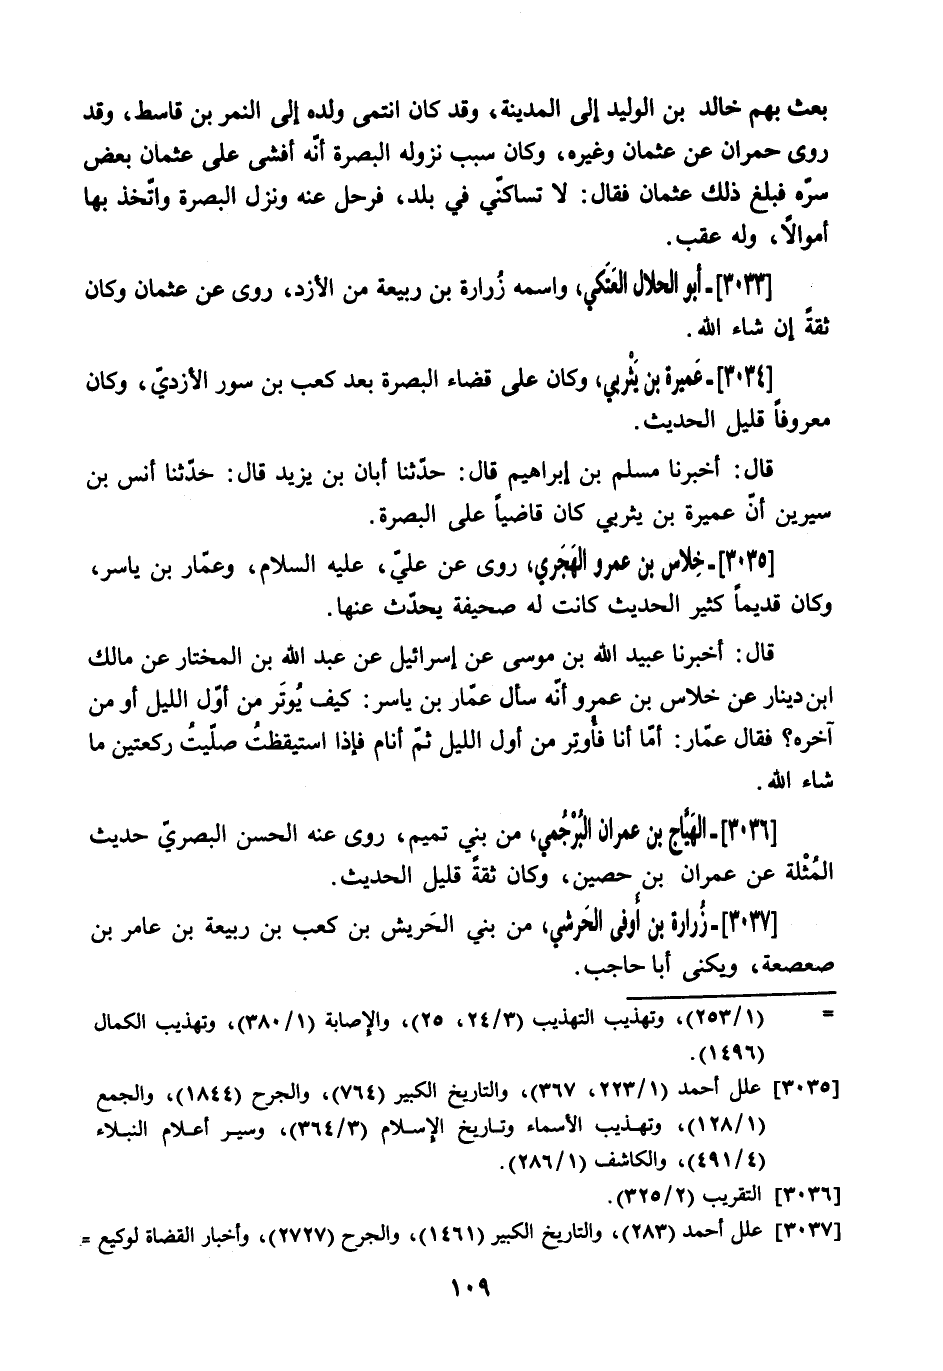 بعث بهم خالد بن الوليد إلى المدينة، وقد كان انتمى ولده إلى النمر بن قاسط، وقد
روى حمران عن عثمان وغيره، وكان سبب نزوله البصرة أنّه أفشى على عثمان بعض
سرّه فبلغ ذلك عثمان فقال: لا تساكنّي في بلد، فرحل عنه ونزل البصرة واتّخذ بها
أموالاً، وله عقب.
[٣٠٣٣]ـ أبو الحلال العَتَكي، واسمه زُرارة بن ربيعة من الأزد، روى عن عثمان وكان
ثقةً إن شاء الله.
[٣٠٣٤]ـ عَميرة بن يَثْربي، وكان على قضاء البصرة بعد كعب بن سور الأزديّ، وكان
معروفاً قليل الحديث.
قال: أخبرنا مسلم بن إبراهيم قال: حدّثنا أبان بن يزيد قال: حدّثنا أنس بن
سيرين أنّ عميرة بن يثربي كان قاضياً على البصرة.
[٣٠٣٥]ـ خِلاس بن عمرو الهَجَري، روى عن عليّ، عليه السلام، وعمّار بن ياسر،
وكان قديماً كثير الحديث كانت له صحيفة يحدّث عنها.
قال: أخبرنا عبيد الله بن موسى عن إسرائيل عن عبد الله بن المختار عن مالك
ابن دينار عن خلاس بن عمرو أنّه سأل عمّار بن ياسر: كيف يُوتَر من أوّل الليل أو من
آخره؟ فقال عمّار: أمّا أنا فأُوتِر من أول الليل ثمّ أنام فإذا استيقظتُ صلّيتُ ركعتين ما
شاء الله.
[٣٠٣٦]ـ الهَيّاج بن عمران البُرْجُمي، من بني تميم، روى عنه الحسن البصريّ حديث
المُثْلة عن عمران بن حصين، وكان ثقةً قليل الحديث.
[٣٠٣٧]ـ زُرارة بن أُوفى الحَرشي، من بني الحَريش بن كعب بن ربيعة بن عامر بن
صعصعة، ويكنى أبا حاجب.
= (٢٥٣/١)، وتهذيب التهذيب (٢٤/٣، ٢٥)، والإصابة (٣٨٠/١)، وتهذيب الكمال
(١٤٩٦).
[٣٠٣٥] علل أحمد (٢٢٣/١، ٣٦٧)، والتاريخ الكبير (٧٦٤)، والجرح (١٨٤٤)، والجمع
(١٢٨/١)، وتهذيب الأسماء وتاريخ الإسلام (٣٦٤/٣)، وسير أعلام النبلاء
(٤٩١/٤)، والكاشف (٢٨٦/١).
[٣٠٣٦] التقريب (٣٢٥/٢).
[٣٠٣٧] علل أحمد (٢٨٣)، والتاريخ الكبير (١٤٦١)، والجرح (٢٧٢٧)، وأخبار القضاة لوكيع =
١٠٩